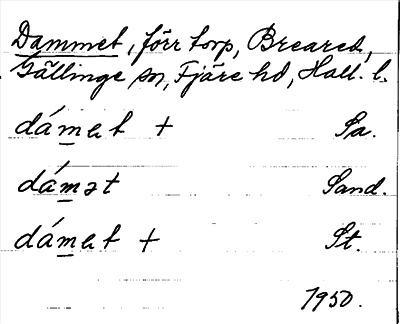 Dammet, förr torp, Breared,
Gällinge sn, Fjäre hd, Hall. l.
dámat + Sa.
dámət Sand.
dámat + St.
1950.